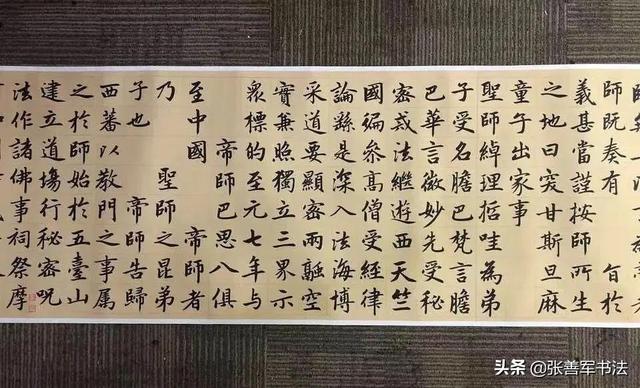 師既奏有 旨於
義甚當謹按師所生
之地曰突甘斯旦麻
童子出家事
聖師綽理哲哇為弟
子受名膽巴梵言膽
巴華言微妙先受秘
密戒法繼遊西天竺
國徧參高僧受經律
論繇是深入法海博
采道要顯密兩融空
實兼照獨立三界示
眾標的至元七年與
帝師巴思八俱
至中國 帝師者
乃 聖師之昆弟
子也 帝師告歸
西蕃以教門之事屬
之於師始於五臺山
建立道場行秘密呪
法作諸佛事祠祭摩
头条 @张善军书法